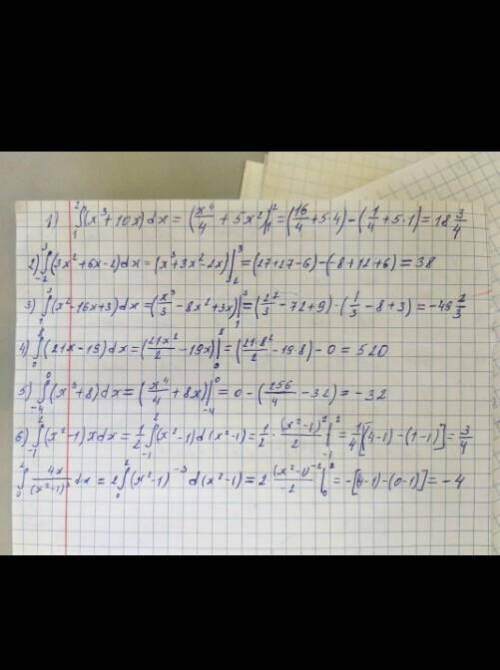 1) ∫₁² (x³+10x)dx = (x⁴/4 + 5x²)|₁² = (16/4 + 5·4) − (1/4 + 5·1) = 18 3/4
2) ∫₋₂³ (3x²+6x−2)dx = (x³+3x²−2x)|₋₂³ = (27+27−6) − (−8+12+6) = 38
3) ∫₁³ (x²−16x+3)dx = (x³/3 − 8x²+3x)|₁³ = (27/3 − 72+9) − (1/3 − 8+3) = −49 2/3
4) ∫₀⁸ (21x−19)dx = (21x²/2 − 19x)|₀⁸ = (21·8²/2 − 19·8) − 0 = 520
5) ∫₋₄⁰ (x³+8)dx = (x⁴/4 + 8x)|₋₄⁰ = 0 − (256/4 − 32) = −32
6) ∫₋₁² (x²−1)xdx = 1/2 ∫₋₁² (x²−1)d(x²−1) = 1/2 · (x²−1)²/2 |₋₁² = 1/4[(4−1)−(1−1)] = 3/4
∫₀² 4x/(x²−1)³ dx = 2∫₀² (x²−1)⁻³ d(x²−1) = 2 (x²−1)⁻²/−2 |₀² = −[(4−1)−(0−1)] = −4